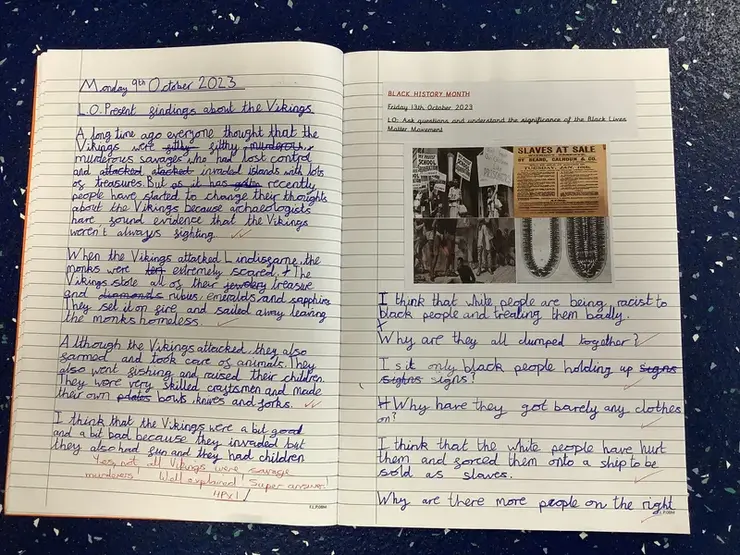 Monday 9th October 2023
L.O. Present findings about the Vikings
A long time ago everyone thought that the
Vikings were filthy filthy murderous,
murderous savages who had lost control
and attacked atacked invaded islands with lots
of treasures. But as it has recently
people have started to change their thoughts
about the Vikings because archaeologists
have found evidence that the Vikings
weren't always fighting.
When the Vikings attacked Lindisfarne, the
monks were extremely scared. The
Vikings stole all of their jewelery treasure
and diamonds rubies, emeralds and sapphires
They set it on fire and sailed away leaving
the monks homeless.
Although the Vikings attacked, they also
farmed and took care of animals. They
also went fishing and raised their children.
They were very skilled craftsmen and made
their own plates bowls, knives and forks.
I think that the Vikings were a bit good
and a bit bad because they invaded but
they also had fun and they had children
Yes, not all Vikings were savage
murderers! Well explained! Super answer.
1HPx1
BLACK HISTORY MONTH
Friday 13th October 2023
LO: Ask questions and understand the significance of the Black Lives
Matter Movement
SLAVES AT SALE
BY BEARD, CALHOUN & CO.
I think that white people are being racist to
black people and treating them badly.
Why are they all clumped together?
Is it only black people holding up signs
signs signs?
Why have they got barely any clothes
on?
I think that the white people have hurt
them and forced them onto a ship to be
sold as slaves.
Why are there more people on the right